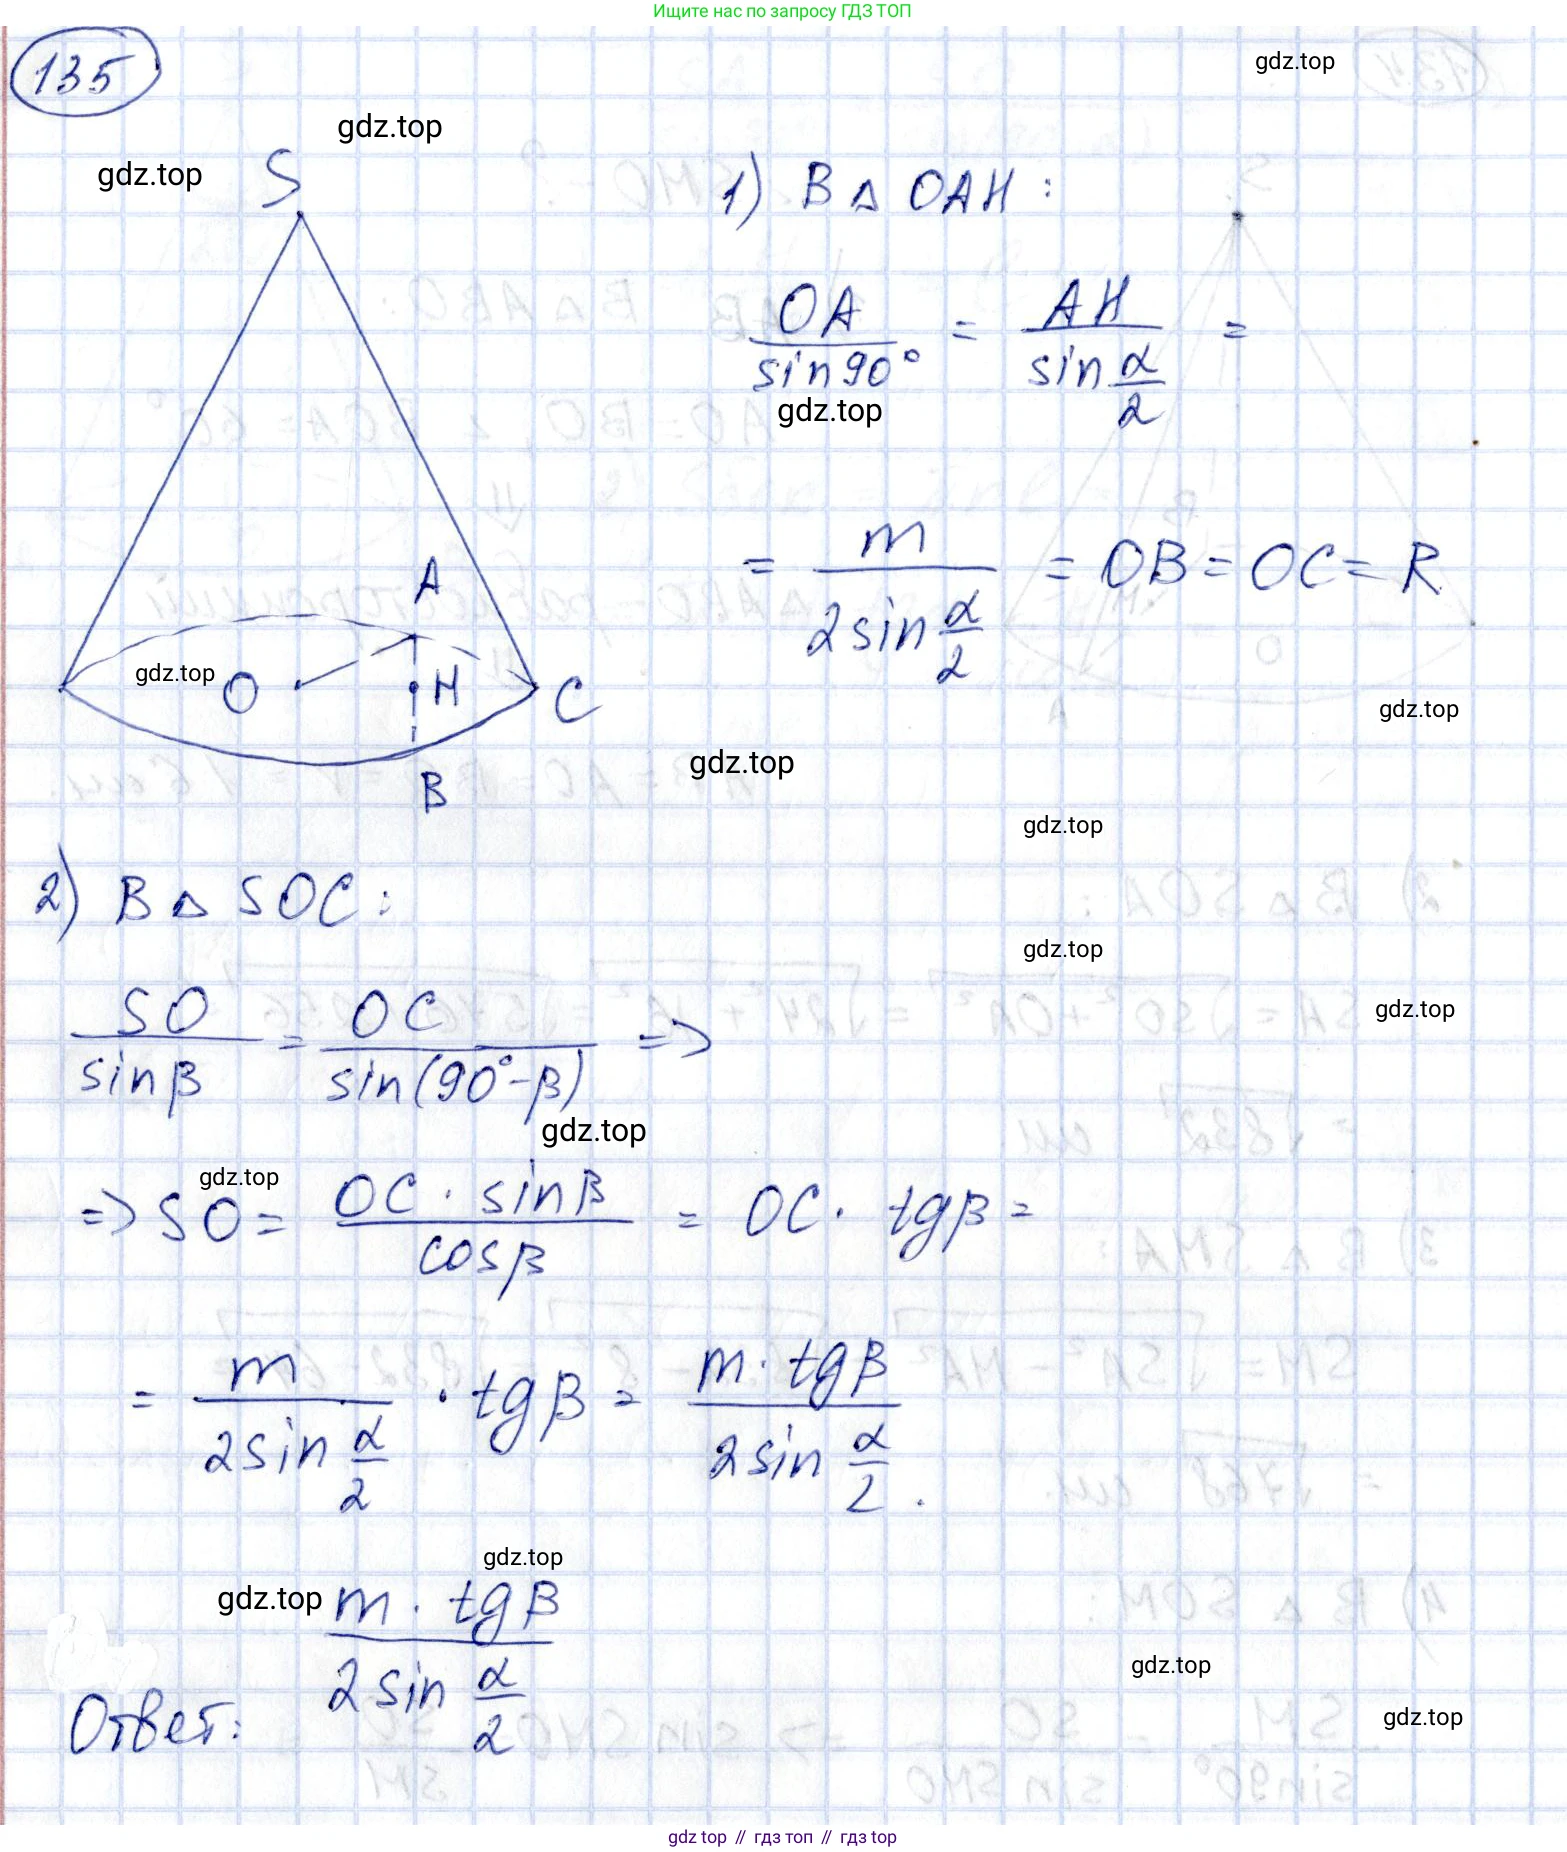 Ищите нас по запросу ГДЗ ТОП
135
gdz.top
gdz.top
gdz.top
S
A
O
H
C
B
gdz.top
1) В △ OAH:
OA / sin 90° = AH / sin α/2 =
gdz.top
= m / 2 sin α/2 = OB = OC = R
gdz.top
gdz.top
gdz.top
2) В △ SOC:
gdz.top
gdz.top
SO / sin β = OC / sin(90° - β) =>
gdz.top
gdz.top
=> SO = OC · sin β / cos β = OC · tg β =
= m / 2 sin α/2 · tg β = m · tg β / 2 sin α/2 .
gdz.top
gdz.top
gdz.top
gdz.top
Ответ: m · tg β / 2 sin α/2
gdz top // гдз топ // гдз top